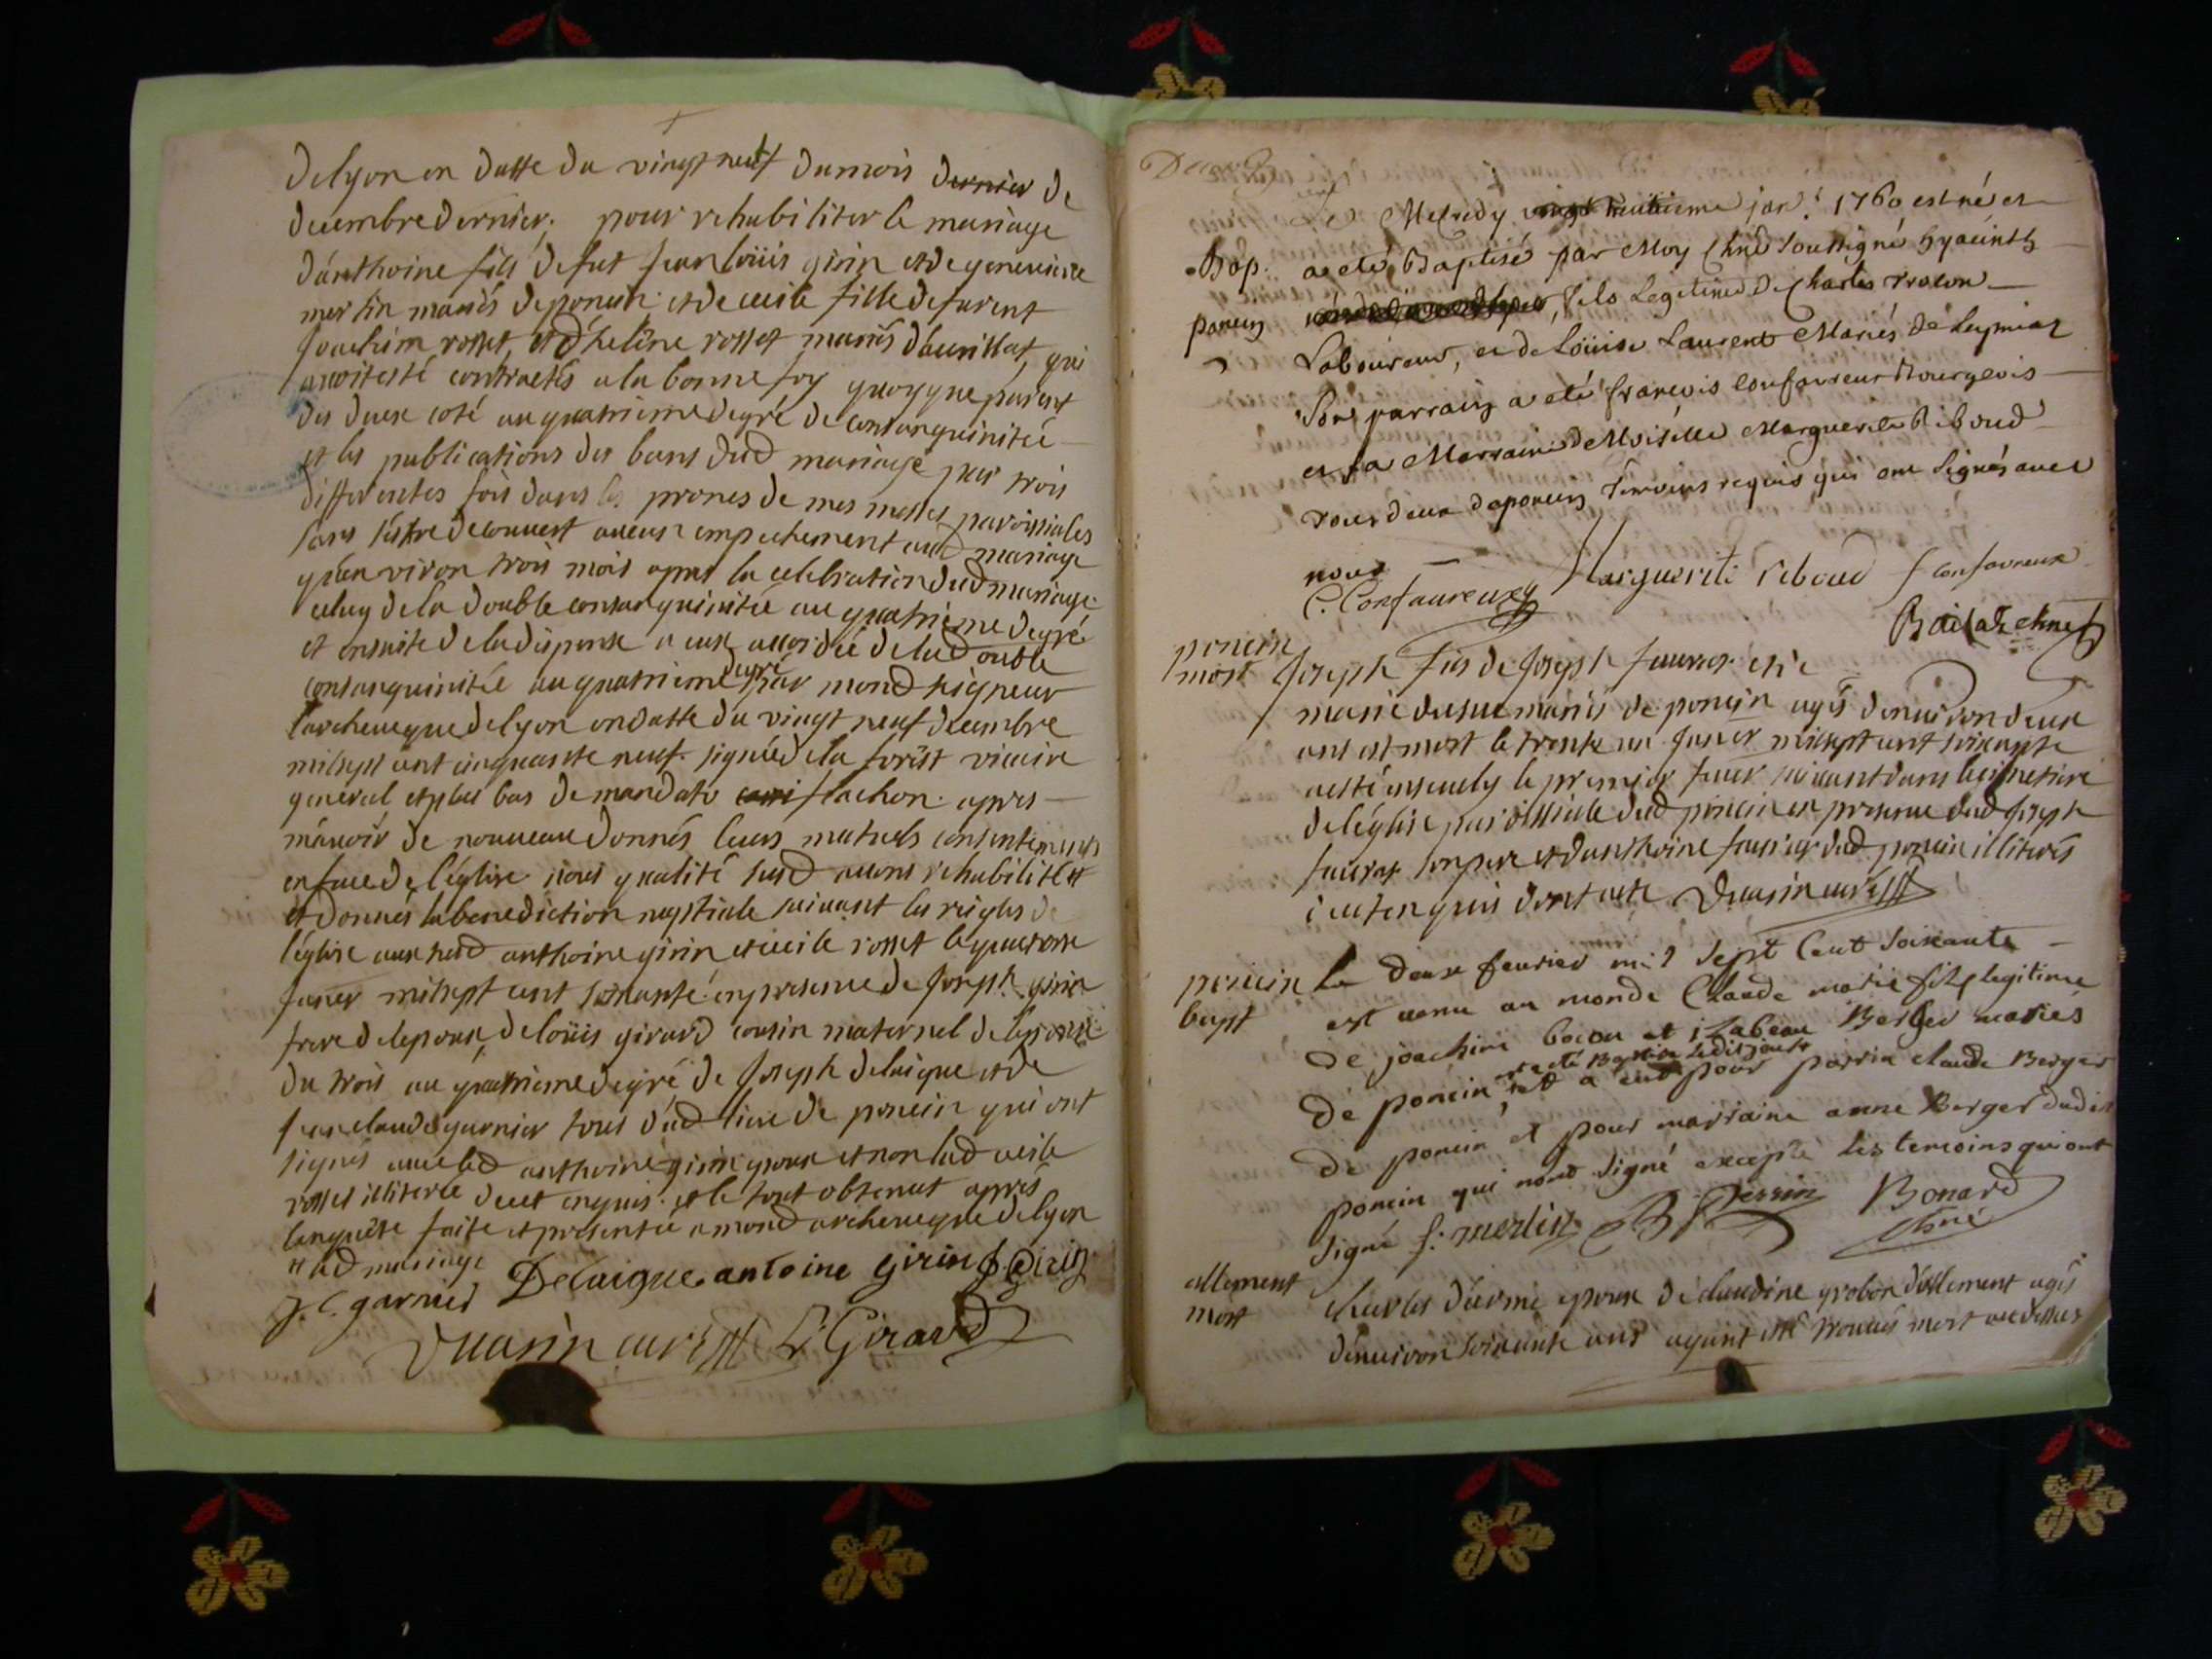 delyon en datte du vingt neuf du mois dernier de
decembre dernier. pour rehabiliter le mariage
d'anthoine fils de fut jean loüis girin et de genevieve
merlin mariés de poncin et de cecile fille de furent
joachim rosset, et d'helêne rosset mariés qui
avoit esté contractés a la bonne foy quoyque parent
des deux coté au quatrieme degré de consanguinitée
et les publications des bans dud mariage par trois
differentes fois dans les prones de mes messes paroissiales
sans s'estre decouvert aucun empechement aud mariage
qu'an viron trois mois apres la celebration dud mariage
celuy de la double consanguinitée au quatrieme degré
et ensuite de la dispense a eux accordée de lad double
consanguinitée au quatrieme degré par mond seigneur
l'archeveque de lyon en datte du vingt neuf decembre
mil sept cent cinquante neuf. signée de la forêst vicaire
general et plus bas de mandato flachon. apres
m'avoir de nouveau donnés leurs mutuels consentements
en face de l'église nous qualité susd avons rehabilité
et donnés la benediction nuptiale suivant les reigles de
l'église aux susd anthoine girin et cecile rosset le quatorze
janer mil sept cent soixante en presence de joseph girin
frere de lepoux, de loüis girard cousin maternel de
du trois au quatrieme degré de joseph delaigue et de
jean claude garnier tous dud lieu de poncin qui ont
signés avec led anthoine girin epoux et non lad cecile
rosset illiterée de ce enquis. et le tout obtenut apres
l'enquête faite et presentée a mond archeveque de lyon
aud mariage
J. C. garnier Delaigue antoine girin J. Girin
curé L. Girard
Le Mecredy vingt huitieme janr 1760 est né et
Bap. a eté Baptisé par Moy soussigné hyacinth
poncin fils Legitime De Charles
Laboureur, et de Loüise Laurent Mariés de Leymiat
Son parrain a eté françois Confavreux Bourgeois
et sa Marraine deMoiselle Marguerite Riboud
tous deux de poncin Temoins requis qui ont signés avec
nous
C. Confavreux Marguerite riboud f confavreux
poncin
mort Joseph fils de Joseph et de
marie mariés de poncin agés d'environ deux
ans est mort le trente un Janer mil sept cent soixante
a esté ensevely le premier fevr suivant dans le cimetiere
de l'église paroissiale dud poncin en presence dud Joseph
son pere et d'anthoine dud poncin illiterés
de ce enquis dont acte curé
poncin Le deux fevrier mil sept Cent soixante
bapt est venu au monde Claude marie fils legitime
de joachim bocon et izabeau Berger mariés
de poncin et a eté Baptise ledit jour et a eut pour parrin claude Berger
de poncin et pour marraine anne Berger dudit
poncin qui nond signé excepté les temoins qui ont
signé f: merlin Perrin Bonard
allement
mort charles epoux de claudine grobon d'allement agés
d'environ soixante ans ayant esté trouvés mort au dessus